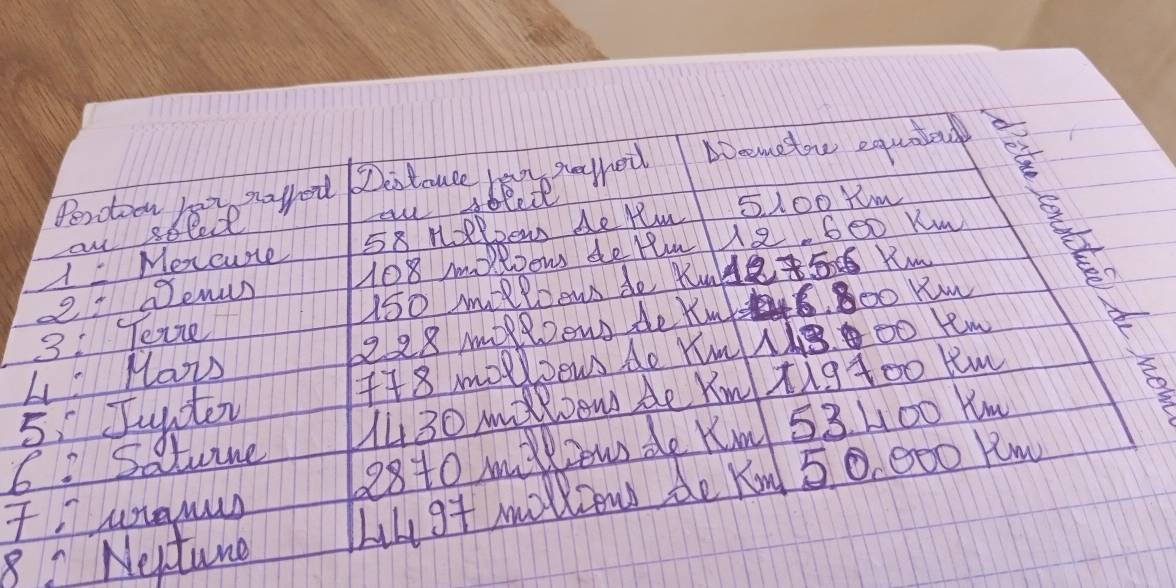 Position par rapport au soleil | Distance par rapport au soleil | Diametre equatorial
1: Mercure | 58 Millions de Km | 5100 Km
2: Venus | 108 millions de Km | 12.600 Km
3: Terre | 150 millions de Km | 12756 Km
4: Mars | 228 millions de Km | 6.800 Km
5: Jupiter | 778 millions de Km | 
6: Saturne | 1430 millions de Km | 119700 Km
7: uranus | 2870 millions de Km | 53400 Km
8: Neptune | 4497 millions de Km | 50.000 Km
d'être de